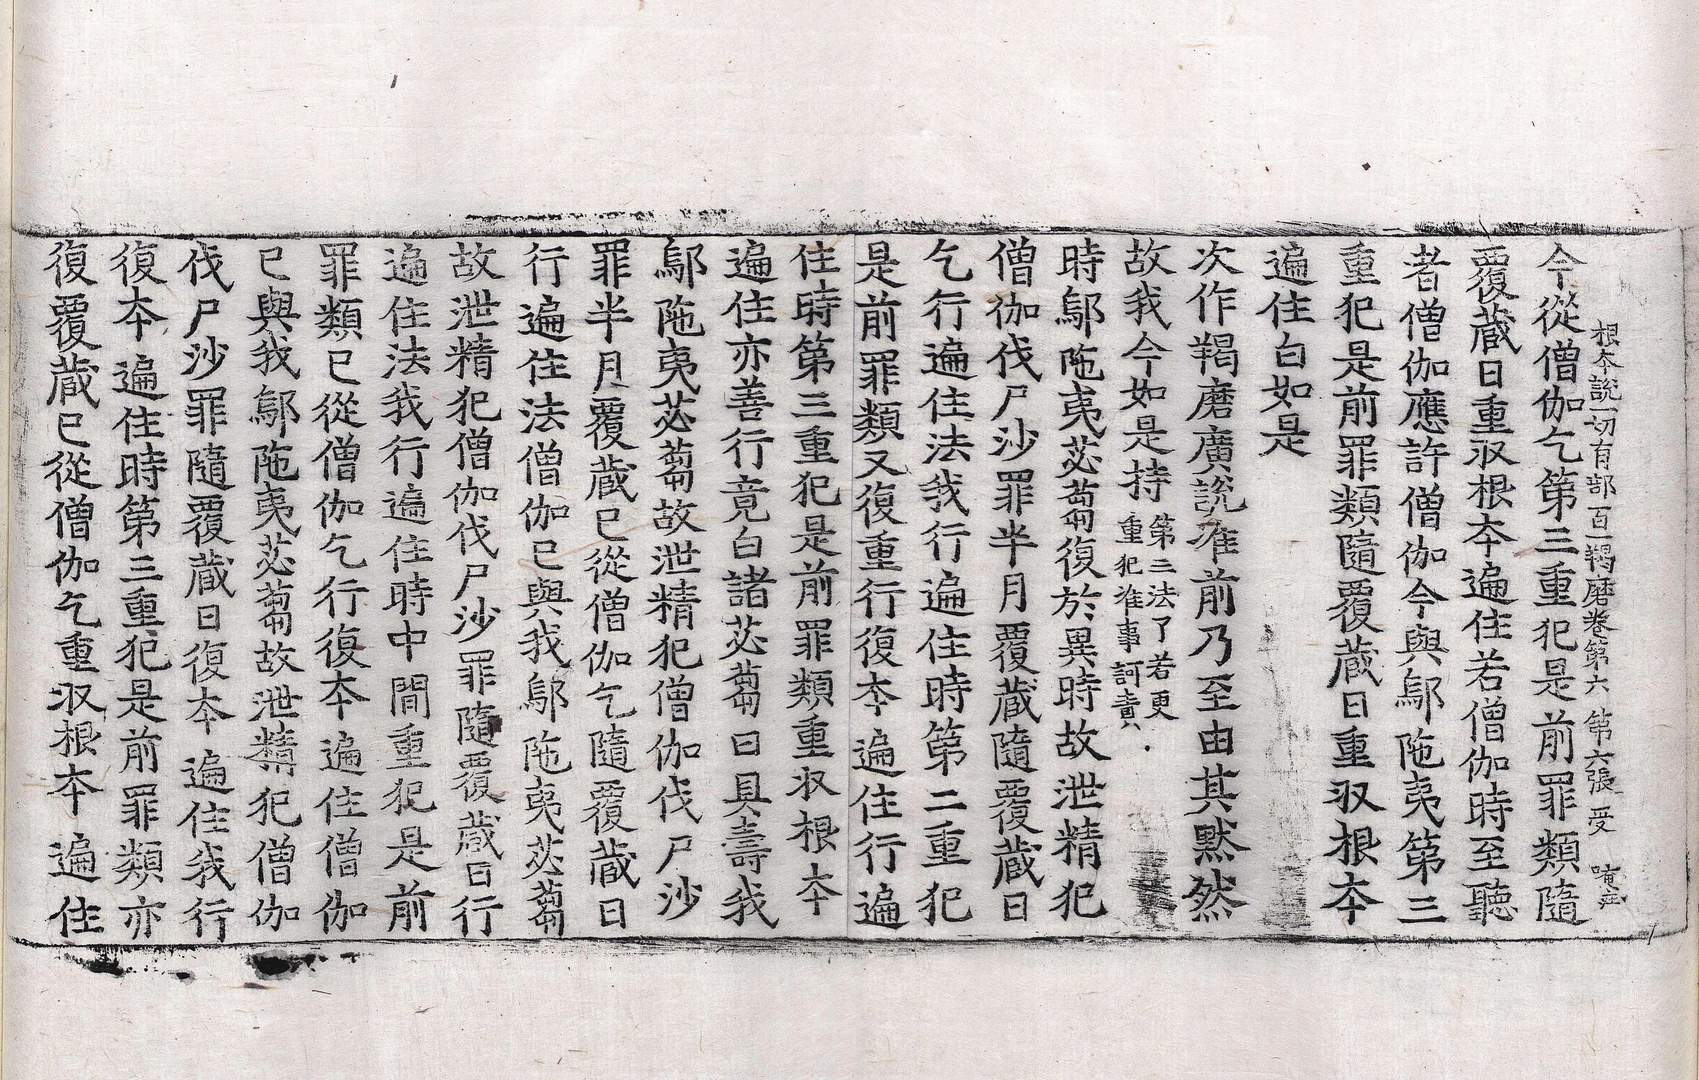 根本說一切有部百一羯磨卷第六 第六張 受
今從僧伽乞第三重犯是前罪類隨
覆藏日重収根本遍住若僧伽時至聽
者僧伽應許僧伽今與鄔陁夷第三
重犯是前罪類隨覆藏日重収根本
遍住白如是
次作羯磨廣說准前乃至由其默然
故我今如是持 第二法了若更
重犯准事訶責
時鄔陁夷苾蒭復於異時故泄精犯
僧伽伐尸沙罪半月覆藏隨覆藏日
乞行遍住法我行遍住時第二重犯
是前罪類又復重行復本遍住行遍
住時第三重犯是前罪類重収根本
遍住亦善行竟白諸苾蒭曰具壽我
鄔陁夷苾蒭故泄精犯僧伽伐尸沙
罪半月覆藏已從僧伽乞隨覆藏日
行遍住法僧伽已與我鄔陁夷苾蒭
故泄精犯僧伽伐尸沙罪隨覆藏日行
遍住法我行遍住時中間重犯是前
罪類已從僧伽乞行復本遍住僧伽
已與我鄔陁夷苾蒭故泄精犯僧伽
伐尸沙罪隨覆藏日復本遍住我行
復本遍住時第三重犯是前罪類亦
復覆藏已從僧伽乞重収根本遍住